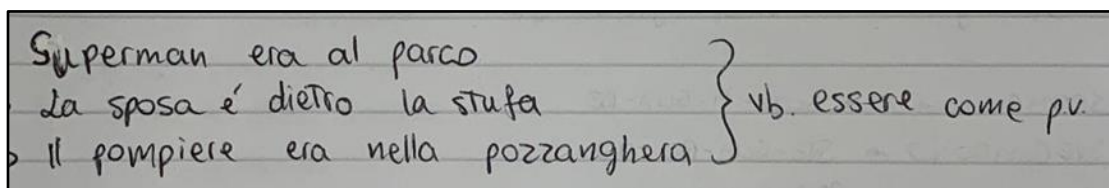 Superman era al parco
La sposa é dietro la stufa
Il pompiere era nella pozzanghera
vb. essere come p.v.